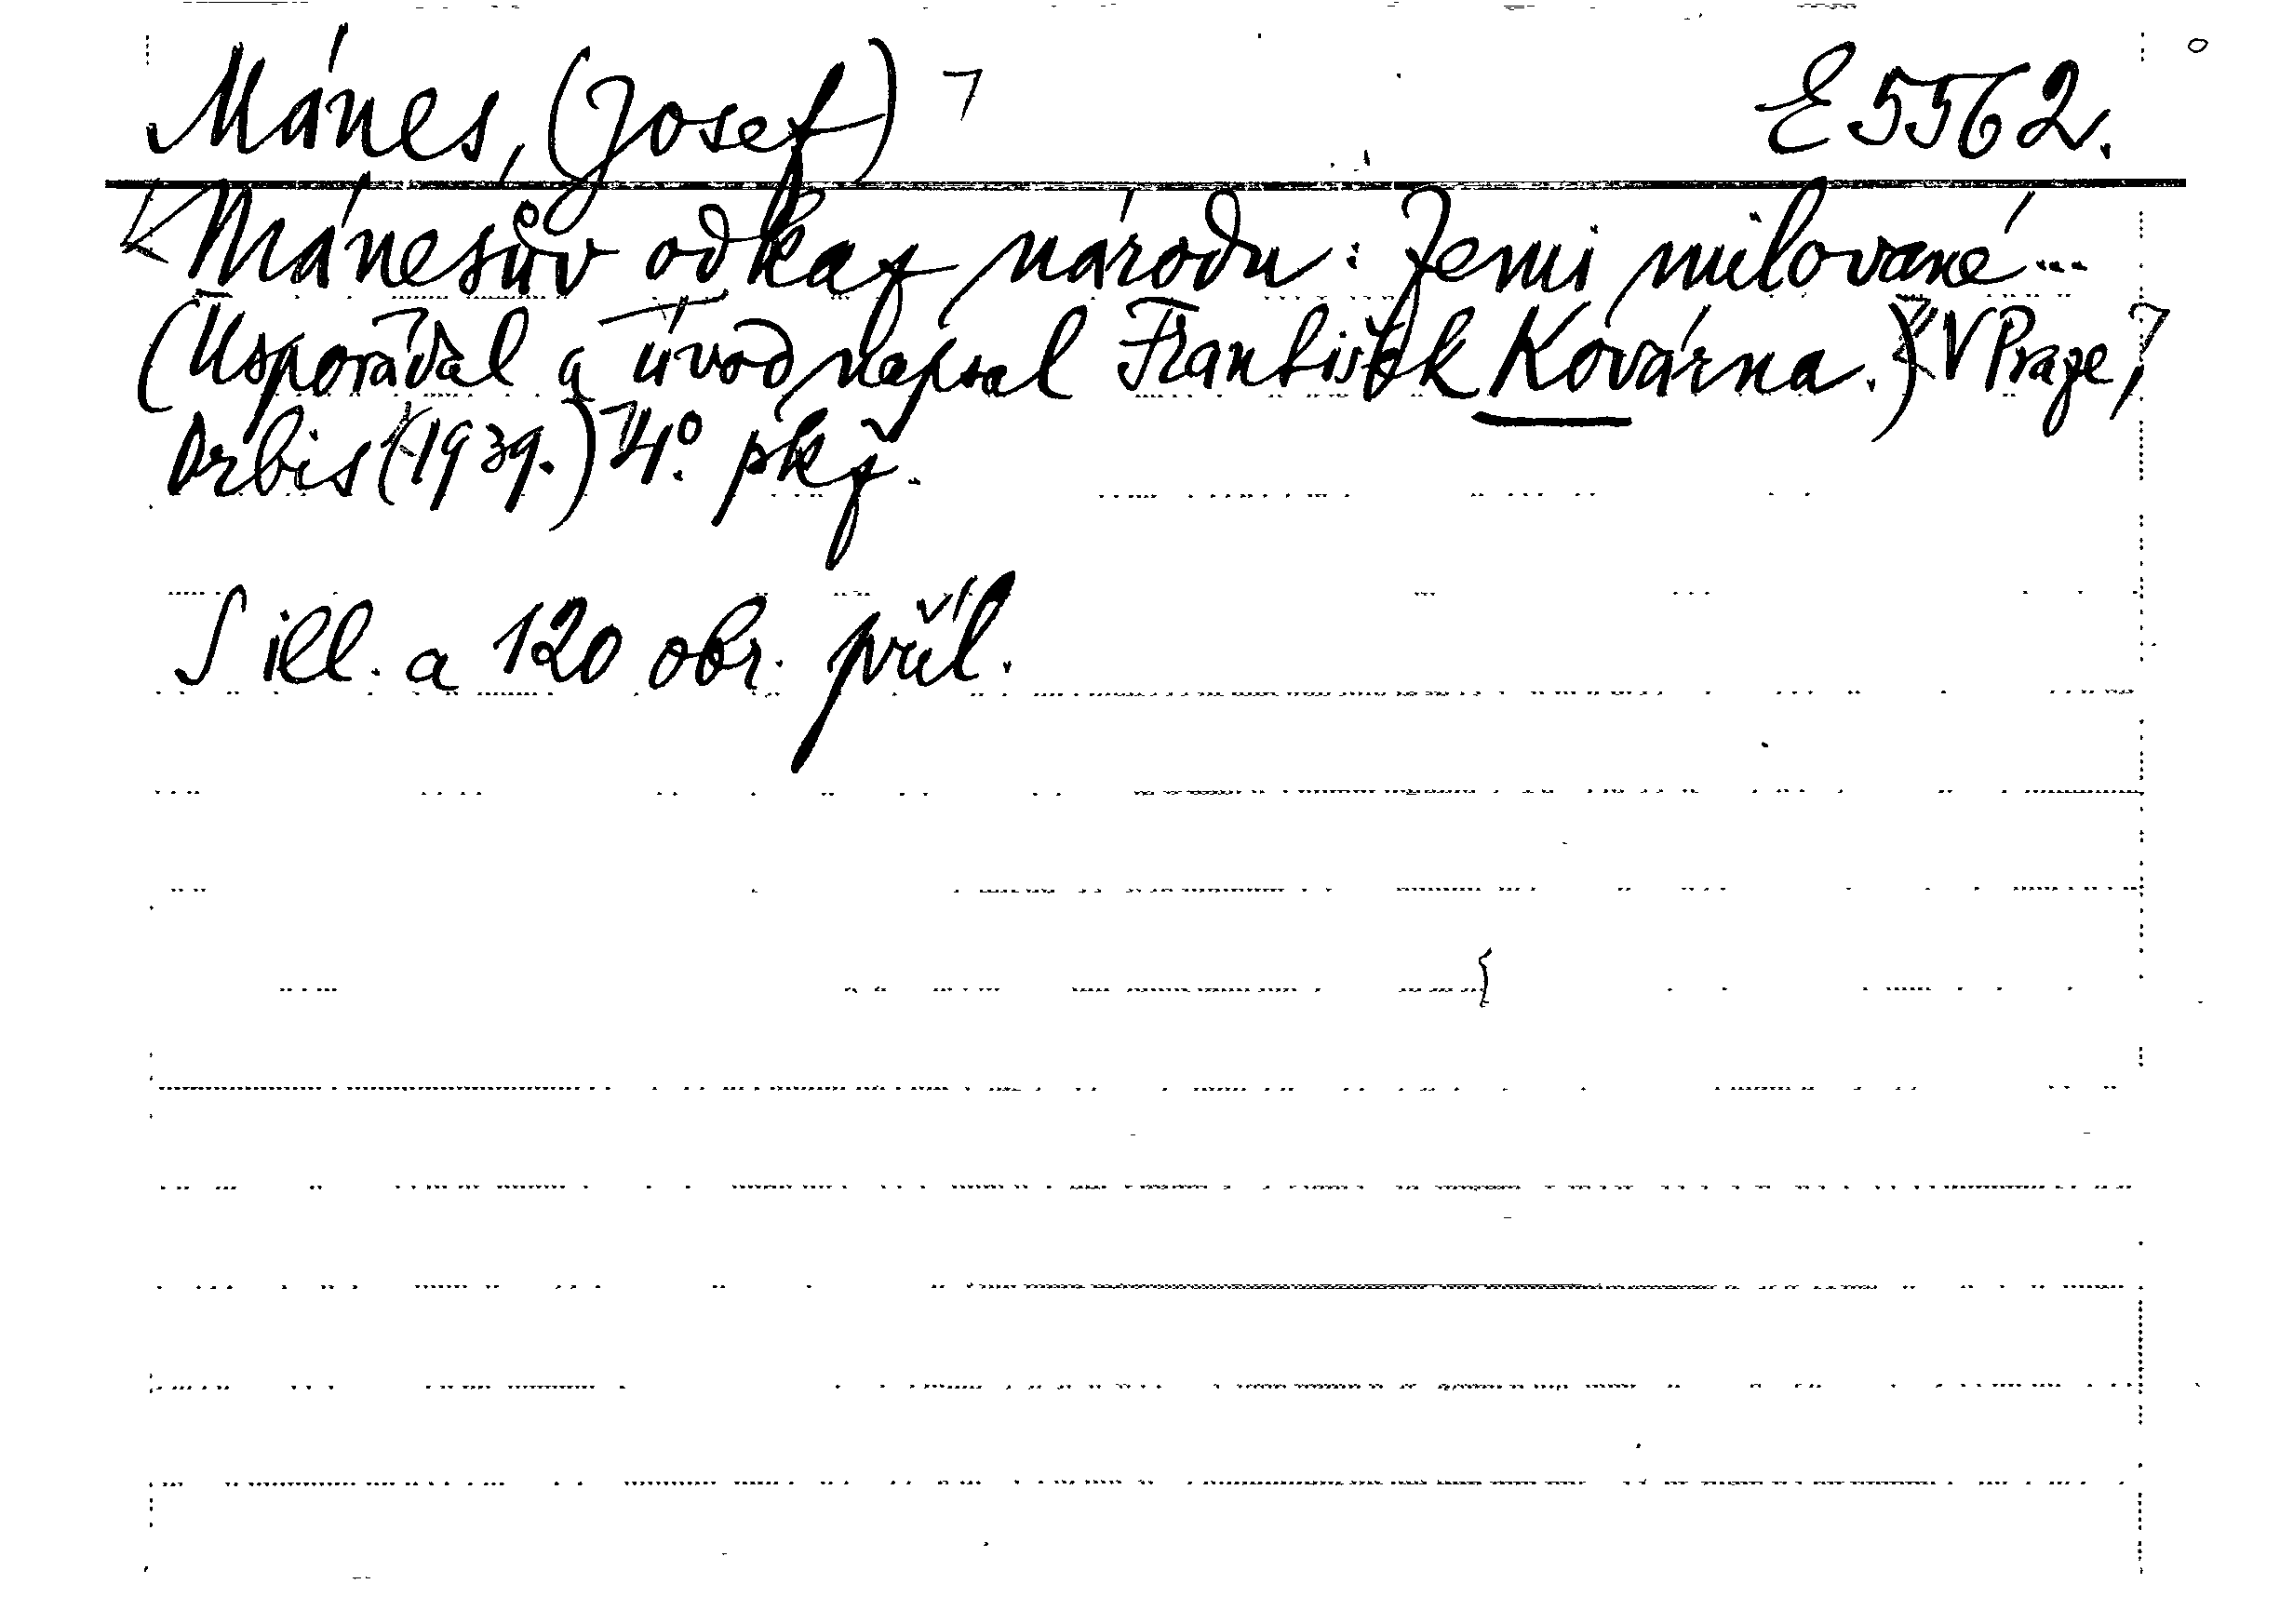 Mánes, (Josef) E 5562.
Mánesův odkaz národu: Zemi milované...
(Uspořádal a úvod napsal František Kovárna.) V Praze,
Orbis (1939.) 4°. pkž.
S ill. a 120 obr. příl.